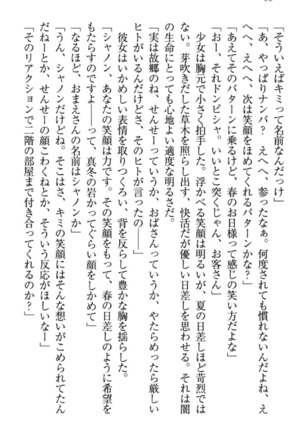 「そういえばキミって名前なんだっけ」
「あ、やっぱりナンパ？　えへへ、参ったなぁ。何度されても慣れないんだよね、え
へへ、えへへ、次は笑顔をほめてくれるパターンかな？」
「あえてそのパターンに乗るけど、春のお日様って感じの笑い方だよな」
「お一、それドンピシャ。いいとこ突くじゃん、お客さん」
少女は胸元で小さく拍手した。浮かべる笑顔は明るいが、夏の日差しほど苛烈では
ない。芽吹きだした草木を照らし出す、快活だが優しい日差しを思わせる。それは闇
の生命にとっても心地よい適度な明るさだ。
「実は故郷のね、せんせーっていうか、おばさんっていうか、やたらめったら厳しい
ヒトがいるんだけどさ、そのヒトが言ったの――」
彼女はいかめしい表情を取りつくろい、背を反らして豊かな胸を揺らした。
「シャノン、あなたの笑顔は力です。その笑顔をもって、春の日差しのように希望を
もたらすのですよ――って、真冬の岩かってぐらい顔をしかめて」
「なるほど、おまえさんの名前はシャノンか」
「うん、シャノンだけどね。そこはさ、キミの笑顔にはそんな想いがこめられてたん
だねーとか、せんせーの顔こわくねとか、そういう反応がほしいなー」
「そのリアクションで二階の部屋まで付き合ってくれるのか？」